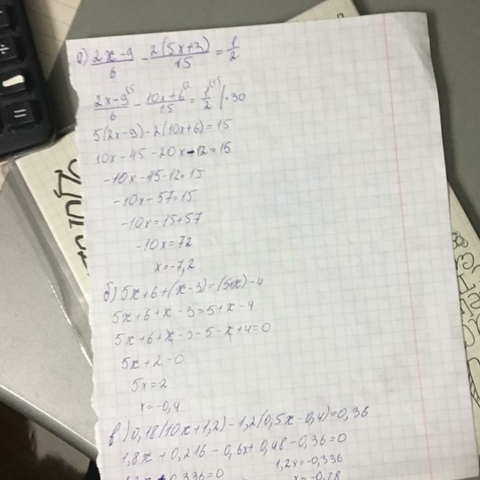 а) (2x-9)/6 - 2(5x+3)/15 = 1/2
(2x-9)/6 - (10x+6)/15 = 1/2 | ·30
5(2x-9)-2(10x+6)=15
10x-45-20x-12=15
-10x-45-12=15
-10x-57=15
-10x=15+57
-10x=72
x=-7,2
б) 5x+6+(x-3)=(5+x)-4
5x+6+x-3=5+x-4
5x+6+x-3-5-x+4=0
5x+2=0
5x=2
x=-0,4
в) 0,18(10x+1,2)-1,2(0,5x-0,4)=0,36
1,8x+0,216-0,6x+0,48-0,36=0
0,336=0 1,2x=-0,336
x=-0,28